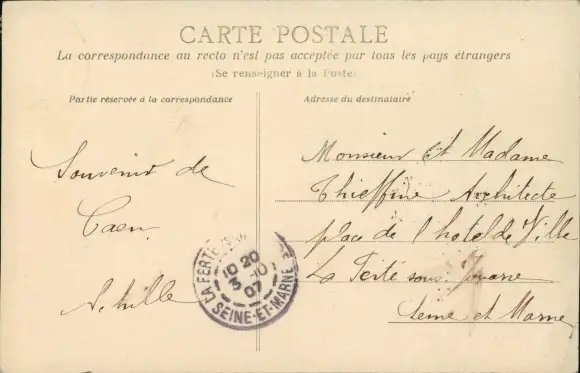 CARTE POSTALE
La correspondance au recto n'est pas acceptée par tous les pays étrangers
(Se renseigner à la Poste)
Partie réservée à la correspondance
Adresse du destinataire
Souvenir de
Caen
Achille
Monsieur et Madame
Thieffine Architecte
place de l'hotel de Ville
La Ferté sous Jouarre
Seine et Marne
LA FERTE
10 20
3 -10
07
SEINE-ET-MARNE